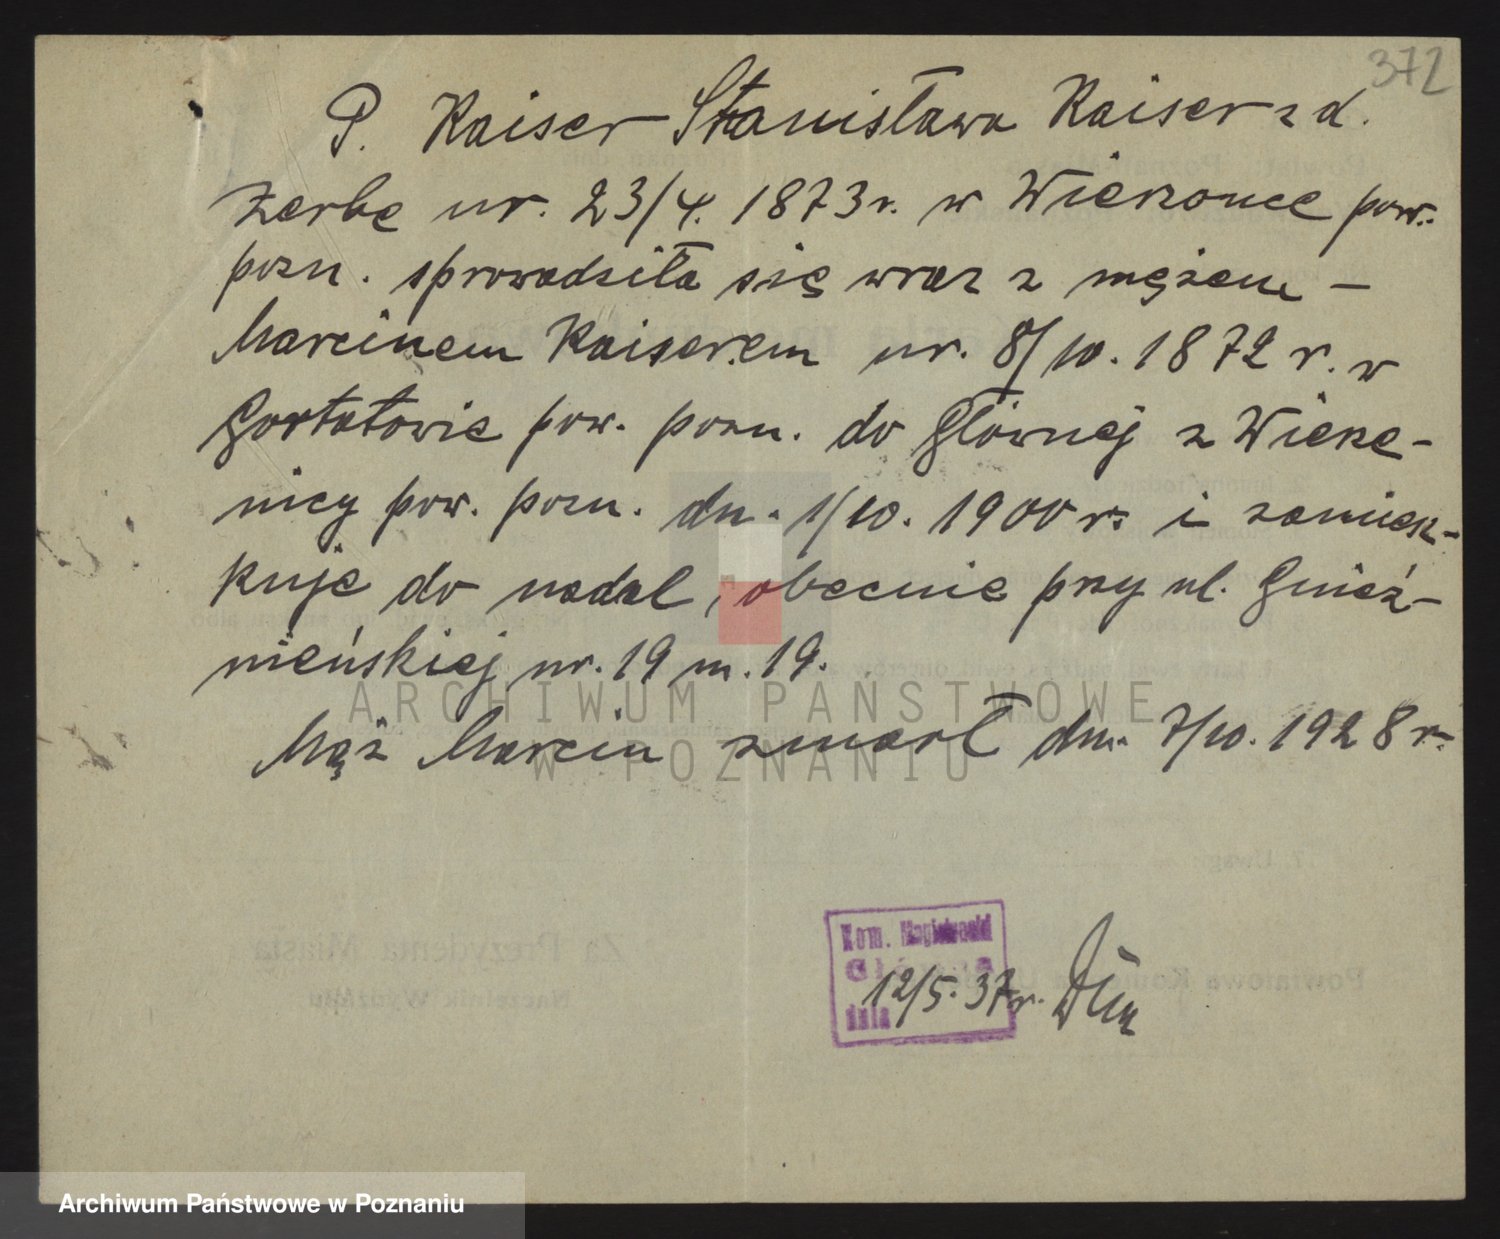 372
P. Kaiser Stanisława Kaiser z d.
Zerbe ur. 23/4. 1873 r. w Wierzonce pow.
pozn. sprowadziła się wraz z mężem –
Marcinem Kaiserem ur. 8/10. 1872 r. w
Gortatowie pow. pozn. do Głównej z Wierze-
nicy pow. pozn. dn. 1/10. 1900 r. i zamiesz-
kuje do nadal, obecnie przy ul. Gnieź-
nieńskiej nr. 19 m. 19.
Mąż Marcin zmarł dn. 7/10. 1928 r.
ARCHIWUM PAŃSTWOWE
W POZNANIU
Kom. Magistracki
Główna
dnia 12/5. 37 r.
Za Prezydenta Miasta
Naczelnik Wydziału
7. Uwagi:
Archiwum Państwowe w Poznaniu